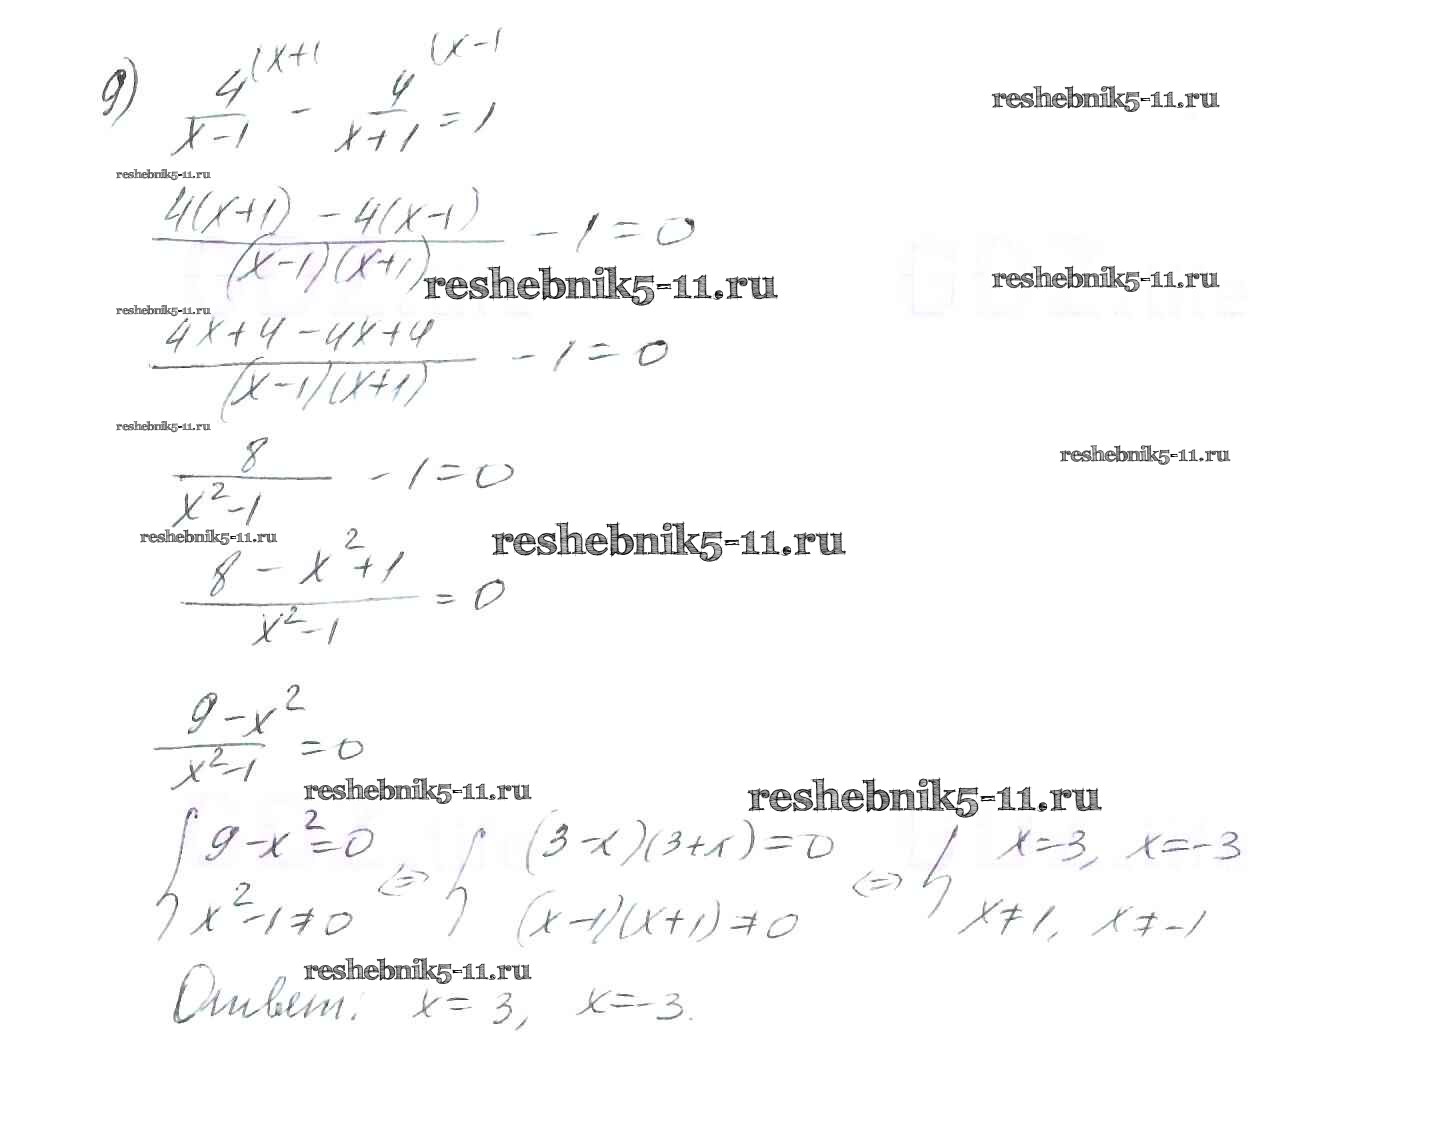 g) 4^(x+1 / x-1 - 4^(x-1 / x+1 = 1
reshebnik5-11.ru
reshebnik5-11.ru
4(x+1) - 4(x-1) / (x-1)(x+1) - 1 = 0
reshebnik5-11.ru
reshebnik5-11.ru
reshebnik5-11.ru
4x+4-4x+4 / (x-1)(x+1) - 1 = 0
reshebnik5-11.ru
8 / x²-1 - 1 = 0
reshebnik5-11.ru
reshebnik5-11.ru
reshebnik5-11.ru
8 - x²+1 / x²-1 = 0
9-x² / x²-1 = 0
reshebnik5-11.ru
reshebnik5-11.ru
{ 9-x²=0 <=> { (3-x)(3+x)=0 <=> { x=3, x=-3
x²-1≠0 (x-1)(x+1)≠0 x≠1, x≠-1
reshebnik5-11.ru
Ответ: x=3, x=-3.